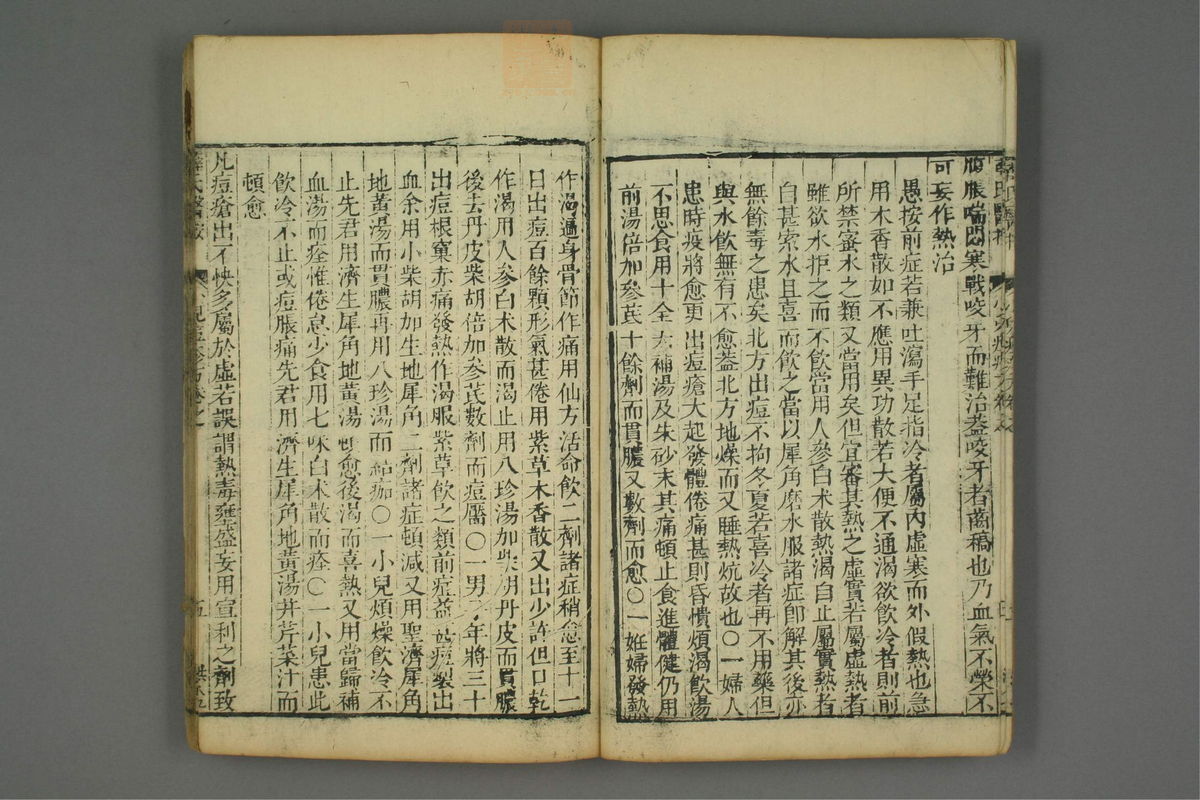 腹脹喘悶寒戰咬牙而難治蓋咬牙者齒稿也乃血氣不榮不
可妄作熱治
愚按前症若兼吐瀉手足指冷者屬內虛寒而外假熱也急
用木香散如不應用異功散若大便不通渴欲飲冷者則前
所禁蜜水之類又當用矣但宜審其熱之虛實若屬虛熱者
雖欲水拒之而不飲當用人參白术散熱渴自止屬實熱者
自甚索水且喜而飲之當以犀角磨水服諸症卽解其後亦
無餘毒之患矣北方出痘不拘冬夏若喜冷者再不用藥但
與水飲無有不愈蓋北方地燥而又睡熱炕故也〇一婦人
患時疫將愈更出痘瘡大起發體倦痛甚則昏憒煩渴飲湯
不思食用十全大補湯及朱砂末其痛頓止食進體健仍用
前湯倍加參芪十餘劑而貫膿又數劑而愈〇一妊婦發熱
作渴遍身骨節作痛用仙方活命飲二劑諸症稍愈至十一
日出痘百餘顆形氣甚倦用紫草木香散又出少許但口乾
作渴用人參白术散而渴止用八珍湯加柴胡丹皮而貫膿
後去丹皮柴胡倍加參芪數劑而痘靨〇一男子年將三十
出痘根窠赤痛發熱作渴服紫草飲之類前症益甚痘裂出
血余用小柴胡加生地犀角二劑諸症頓減又用聖濟犀角
地黃湯而貫膿再用八珍湯而結痂〇一小兒煩燥飲冷不
止先君用濟生犀角地黃湯頓愈後渴而喜熱又用當歸補
血湯而痊惟倦怠少食用七味白术散而痊〇一小兒患此
飲冷不止或痘脹痛先君用濟生犀角地黃湯并芹菜汁而
頓愈
凡痘瘡出不快多屬於虛若誤謂熱毒壅盛妄用宣利之劑致
薛氏醫案
五